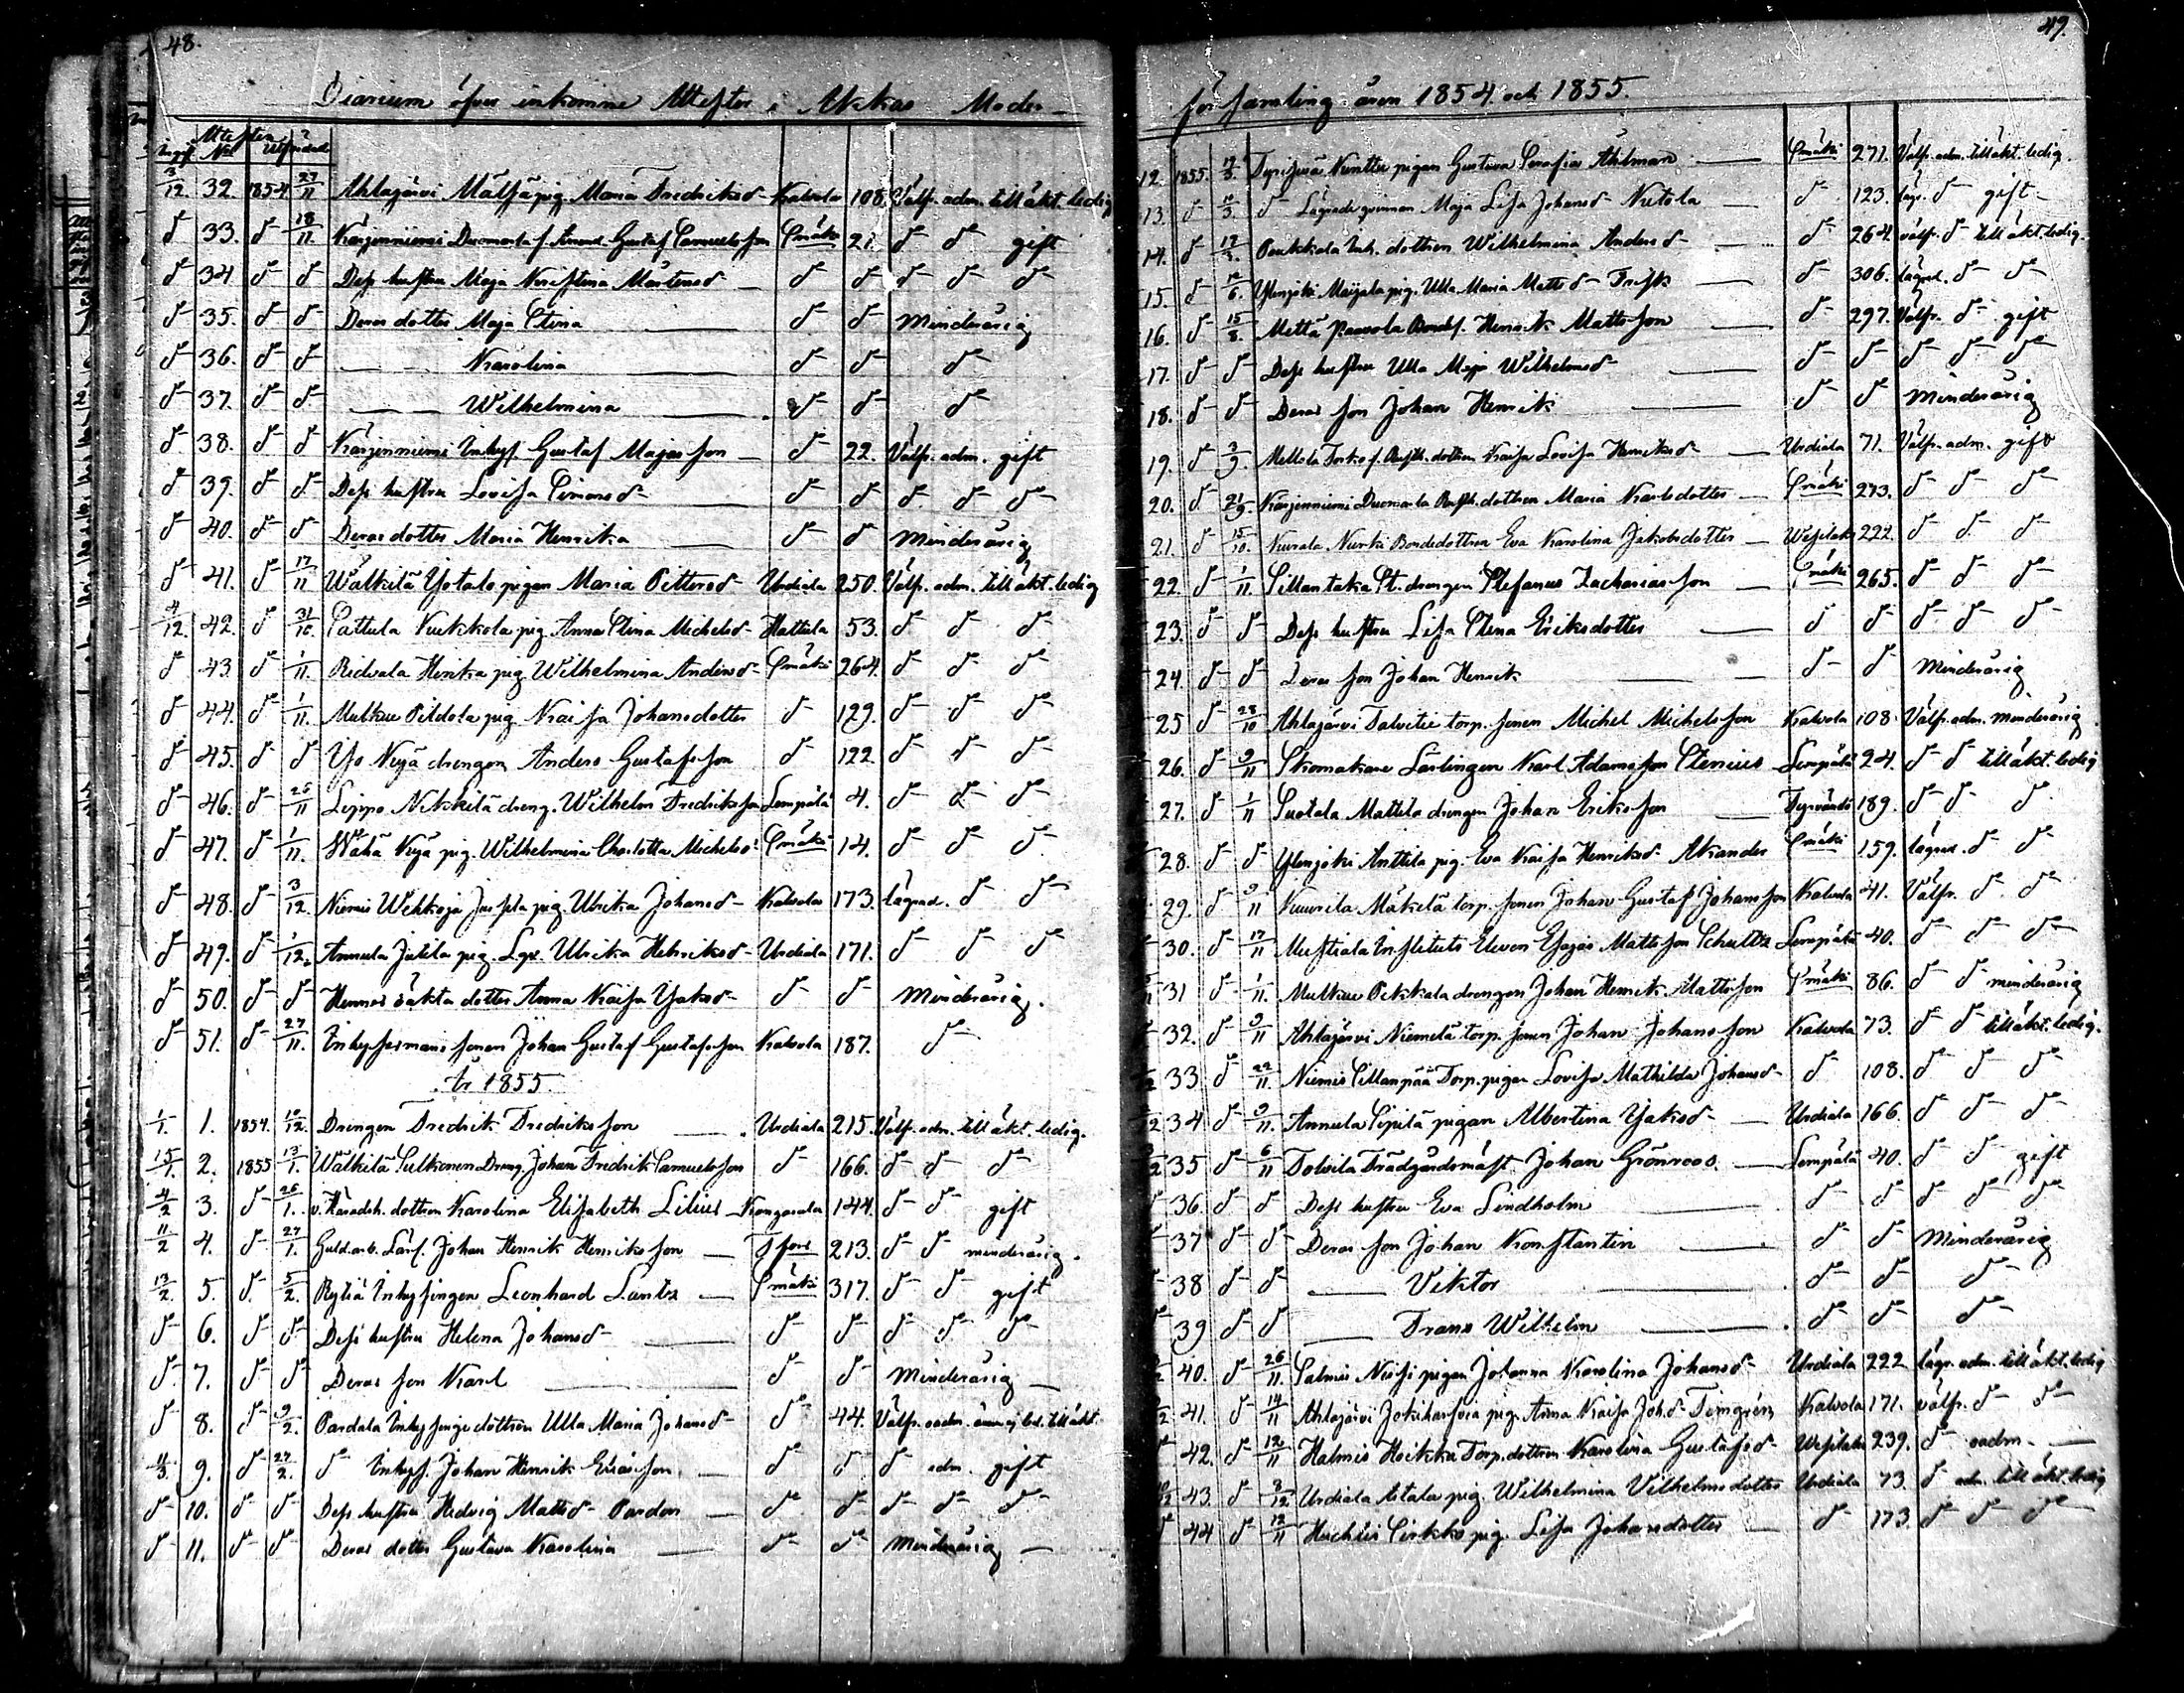 48.
Diarium öfver inkomne Attester i Akkas Moder-
Ingif. Attestens No Utfärdad
3/12 32. 1854 27/11 Ahlajärvi Mälssä pig. Maria Fredriksd- Kalvola 108. Välfr. adm. till äkt. ledig
d- 33. d- 18/11 Karjenniemi Gustaf Samuelsson Smäki 21. d- d- gift
d- 34 d- d- Dess hustru Maja Kristina Mårtensd- d- d- d- d- d-
d- 35. d- d- Deras dotter Maja Stina d- d- Minderårig
d- 36. d- d- Karolina d- d- d-
d- 37. d- d- Wilhelmina d- d- d-
d- 38. d- d- Karjenniemi Inhys. Gustaf Majasson d- 22. Välfr. adm. gift
d- 39. d- d- Dess hustru Lovisa Simonsd- d- d- d- d- d-
d- 40. d- d- Deras dotter Maria Henrika d- d- minderårig
d- 41. d- 17/11 Wälkilä Yotalo pigan Maria Pettersd- Urdiala 250. Välfr. adm. till äkt. ledig
4/12. 42. d- 31/10. Pattula Kukkola pig. Anna Stina Michelsd- Hattula 53. d- d- d-
d- 43. d- 1/11. Ridvala Henika pig. Wilhelmina Andersd- Smäki 264. d- d- d-
d- 44. d- 1/11. Mulkue pig. Kaisa Johansdotter d- 129. d- d- d-
d- 45. d- d- Yso Kujä drengen Anders Gustafsson d- 122. d- d- d-
d- 46. d- 26/11 Lippo Nikkilä dreng. Wilhelm Fredriksson Lempälä 4. d- d- d-
d- 47. d- 1/11. Wähä Kujä pig. Wilhelmina Charlotta Michelsd- Smäki 14. d- d- d-
d- 48. d- 3/12. Niemis Wehkoja pig. Ulrika Johansd- Kalvola 173. lägrad. d- d-
d- 49. d- 1/12. Annula Jutila pig. Lgr. Ulrika Henriksd- Urdiala 171. d- d- d-
d- 50. d- d- Hennes oäkta dotter Anna Kaisa Yaksd- d- d- Minderårig.
d- 51. d- 27/11. Inhyses mans sonen Johan Gustaf Gustafsson Kalvola 187. d-
år 1855.
1/1. 1. 1854. 10/12. Drengen Fredrik Fredriksson Urdiala 215. Välfr. adm. till äkt. ledig.
15/1. 2. 1855 13/1. Wälkilä Sulkonen Dreng. Johan Fredrik Samuelsson d- 166. d- d- d-
4/2 3. d- 26/1. v. Häradsh. dottren Karolina Elisabeth Lilius Kangasala 144. d- d- gift
11/2 4. d- 27/1. Guld.arb. Lärl. Johan Henrik Henriksson Tfors 213. d- d- minderårig.
13/2. 5. d- 5/2. Rytiä Inhysingen Leonhard Lants Smäki 317. d- d- gift
d- 6. d- d- Dess hustru Helena Johansd- d- d- d- d- d-
d- 7. d- d- Deras son Karl d- d- Minderårig
d- 8. d- 9/2. Pardala Inhysinge dottren Ulla Maria Johansd- d- 44. Välfr. oadm. till äkt
4/3. 9. d- 27/2. d- Inhys. Johan Henrik Eliasson d- d- d- adm. gift
d- 10. d- d- Dess hustru Hedvig Mattsd- Pardon d- d- d- d- d-
d- 11. d- d- Deras dotter Gustava Karolina d- d- Minderårig
49.
församling åren 1854 och 1855.
12. 1855. Kunttu pigan Gustava Serafia Ahlman Smäki 271. Välfr. adm. till äkt. ledig.
13. d- 10/3. d- Lägrade qvinnan Maja Lisa Johansd- Kutola d- 123. lägr. d- gift
14. d- 12/3. Inh. dottren Wilhelmina Andersd- d- 264. välfr. d- till äkt. ledig.
15. d- Ylenjoki Maijala pig. Ulla Maria Mattsd- Frisk d- 306. lägrad. d- d-
16. d- 15/8. Mettä Paavola Bondes. Henrik Mattsson d- 297. Välfr. d- gift
17. d- d- Dess hustru Ulla Maja Wilhelmsd- d- d- d- d- d-
18. d- d- Deras son Johan Henrik d- d- Minderårig
19. d- 3/9. Mellola dottren Kaisa Lovisa Henriksd- Urdiala 71. Välfr. adm. gift
20. d- 21/9. Karjenniemi dottren Maria Karlsdotter Smäki 273. d- d- d-
21. d- 15/10. Kurala Kurki Bondedottren Eva Karolina Jakobsdotter Wesilaks 222. d- d- d-
22. d- 1/11. Sillantaka St. drengen Stefanus Zachariasson Smäki 265. d- d- d-
23. d- d- Dess hustru Lisa Stina Eriksdotter d- d- d- d- d-
24. d- d- Deras son Johan Henrik d- d- Minderårig
25 d- 28/10 Ahlajärvi Talvitie torp. sonen Michel Michelsson Kalvola 108. Välfr. adm. minderårig
26. d- 9/11 Skomakare Lärlingen Karl Adamsson Stenius Lempälä 24. d- d- till äkt. ledig
27. d- 1/11 Suotala Mattila drengen Johan Eriksson Tyrvändö 189. d- d- d-
28. d- d- Ylenjoki Anttila pig. Eva Kaisa Henriksd- Akander Smäki 159. lägrad. d- d-
29. d- 9/11 Kuurila Mäkelä torp. sonen Johan Gustaf Johansson Kalvola 41. Välfr. d- d-
30. d- 17/11 Mustiala Instituts Eleven Esajas Mattsson Schultz Lempälä 40. d- d- d-
31 d- 1/11. Mulkue Pekkala drengen Johan Henrik Mattsson Smäki 86. d- d- minderårig
32. d- 9/11 Ahlajärvi Niemelä torp. sonen Johan Johansson Kalvola 73. d- d- till äkt. ledig.
33 d- 22/11. Niemis Sillanpää Torp. pigan Lovisa Mathilda Johansd- d- 108. d- d- d-
34 d- 9/11. Annula Pipilä pigan Albertina Yaksd- Urdiala 166. d- d- d-
35 d- 6/11 Toivila Trädgårdsmäst. Johan Grönroos. Lempälä 40. d- d- gift
36. d- d- Dess hustru Eva Lindholm d- d- d- d- d-
37 d- d- Deras son Johan Konstantin d- d- Minderårig
38 d- d- Viktor d- d- d-
39 d- d- Frans Wilhelm d- d- d-
40. d- 26/11. Salmis pigan Johanna Karolina Johansd- Urdiala 222 lägr. adm. till äkt. ledig
41. d- 14/11 Ahlajärvi pig. Anna Kaisa Joh.d- Kalvola 171. välfr. d- d-
42. d- 12/11 Halmis Heikka Torp. dottren Karolina Gustafsd- Wesilaks 239. d- oadm.
43. d- 3/12 Urdiala pig. Wilhelmina Vilhelmsdotter Urdiala 73. d- adm. till äkt. ledig
44 d- 12/11 Huchtis Pirkko pig. Lisa Johansdotter d- 173. d- d- d-